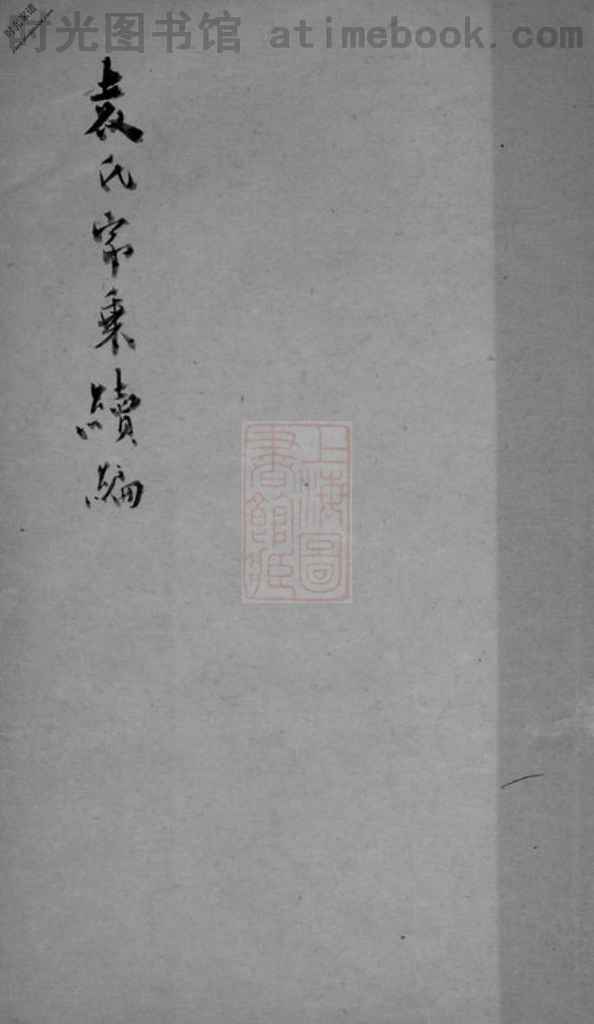 时光图书馆 atimebook.com
袁氏宗乘續編
上海圖
書館藏